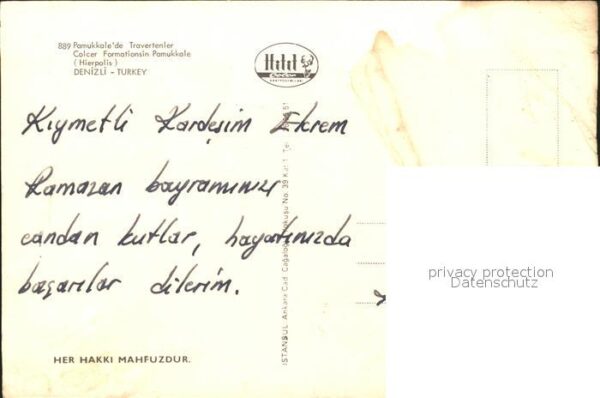 889 Pamukkale'de Travertenler
Calcer Formationsin Pamukkale
( Hierpolis )
DENİZLİ - TURKEY
Hitit
Kıymetli Kardeşim Ekrem
Ramazan bayramınızı
candan kutlar, hayatınızda
başarılar dilerim.
HER HAKKI MAHFUZDUR.
İSTANBUL Ankara Cad. Cağaloğlu Yokuşu No. 39 Kat 1 Tel
privacy protection
Datenschutz